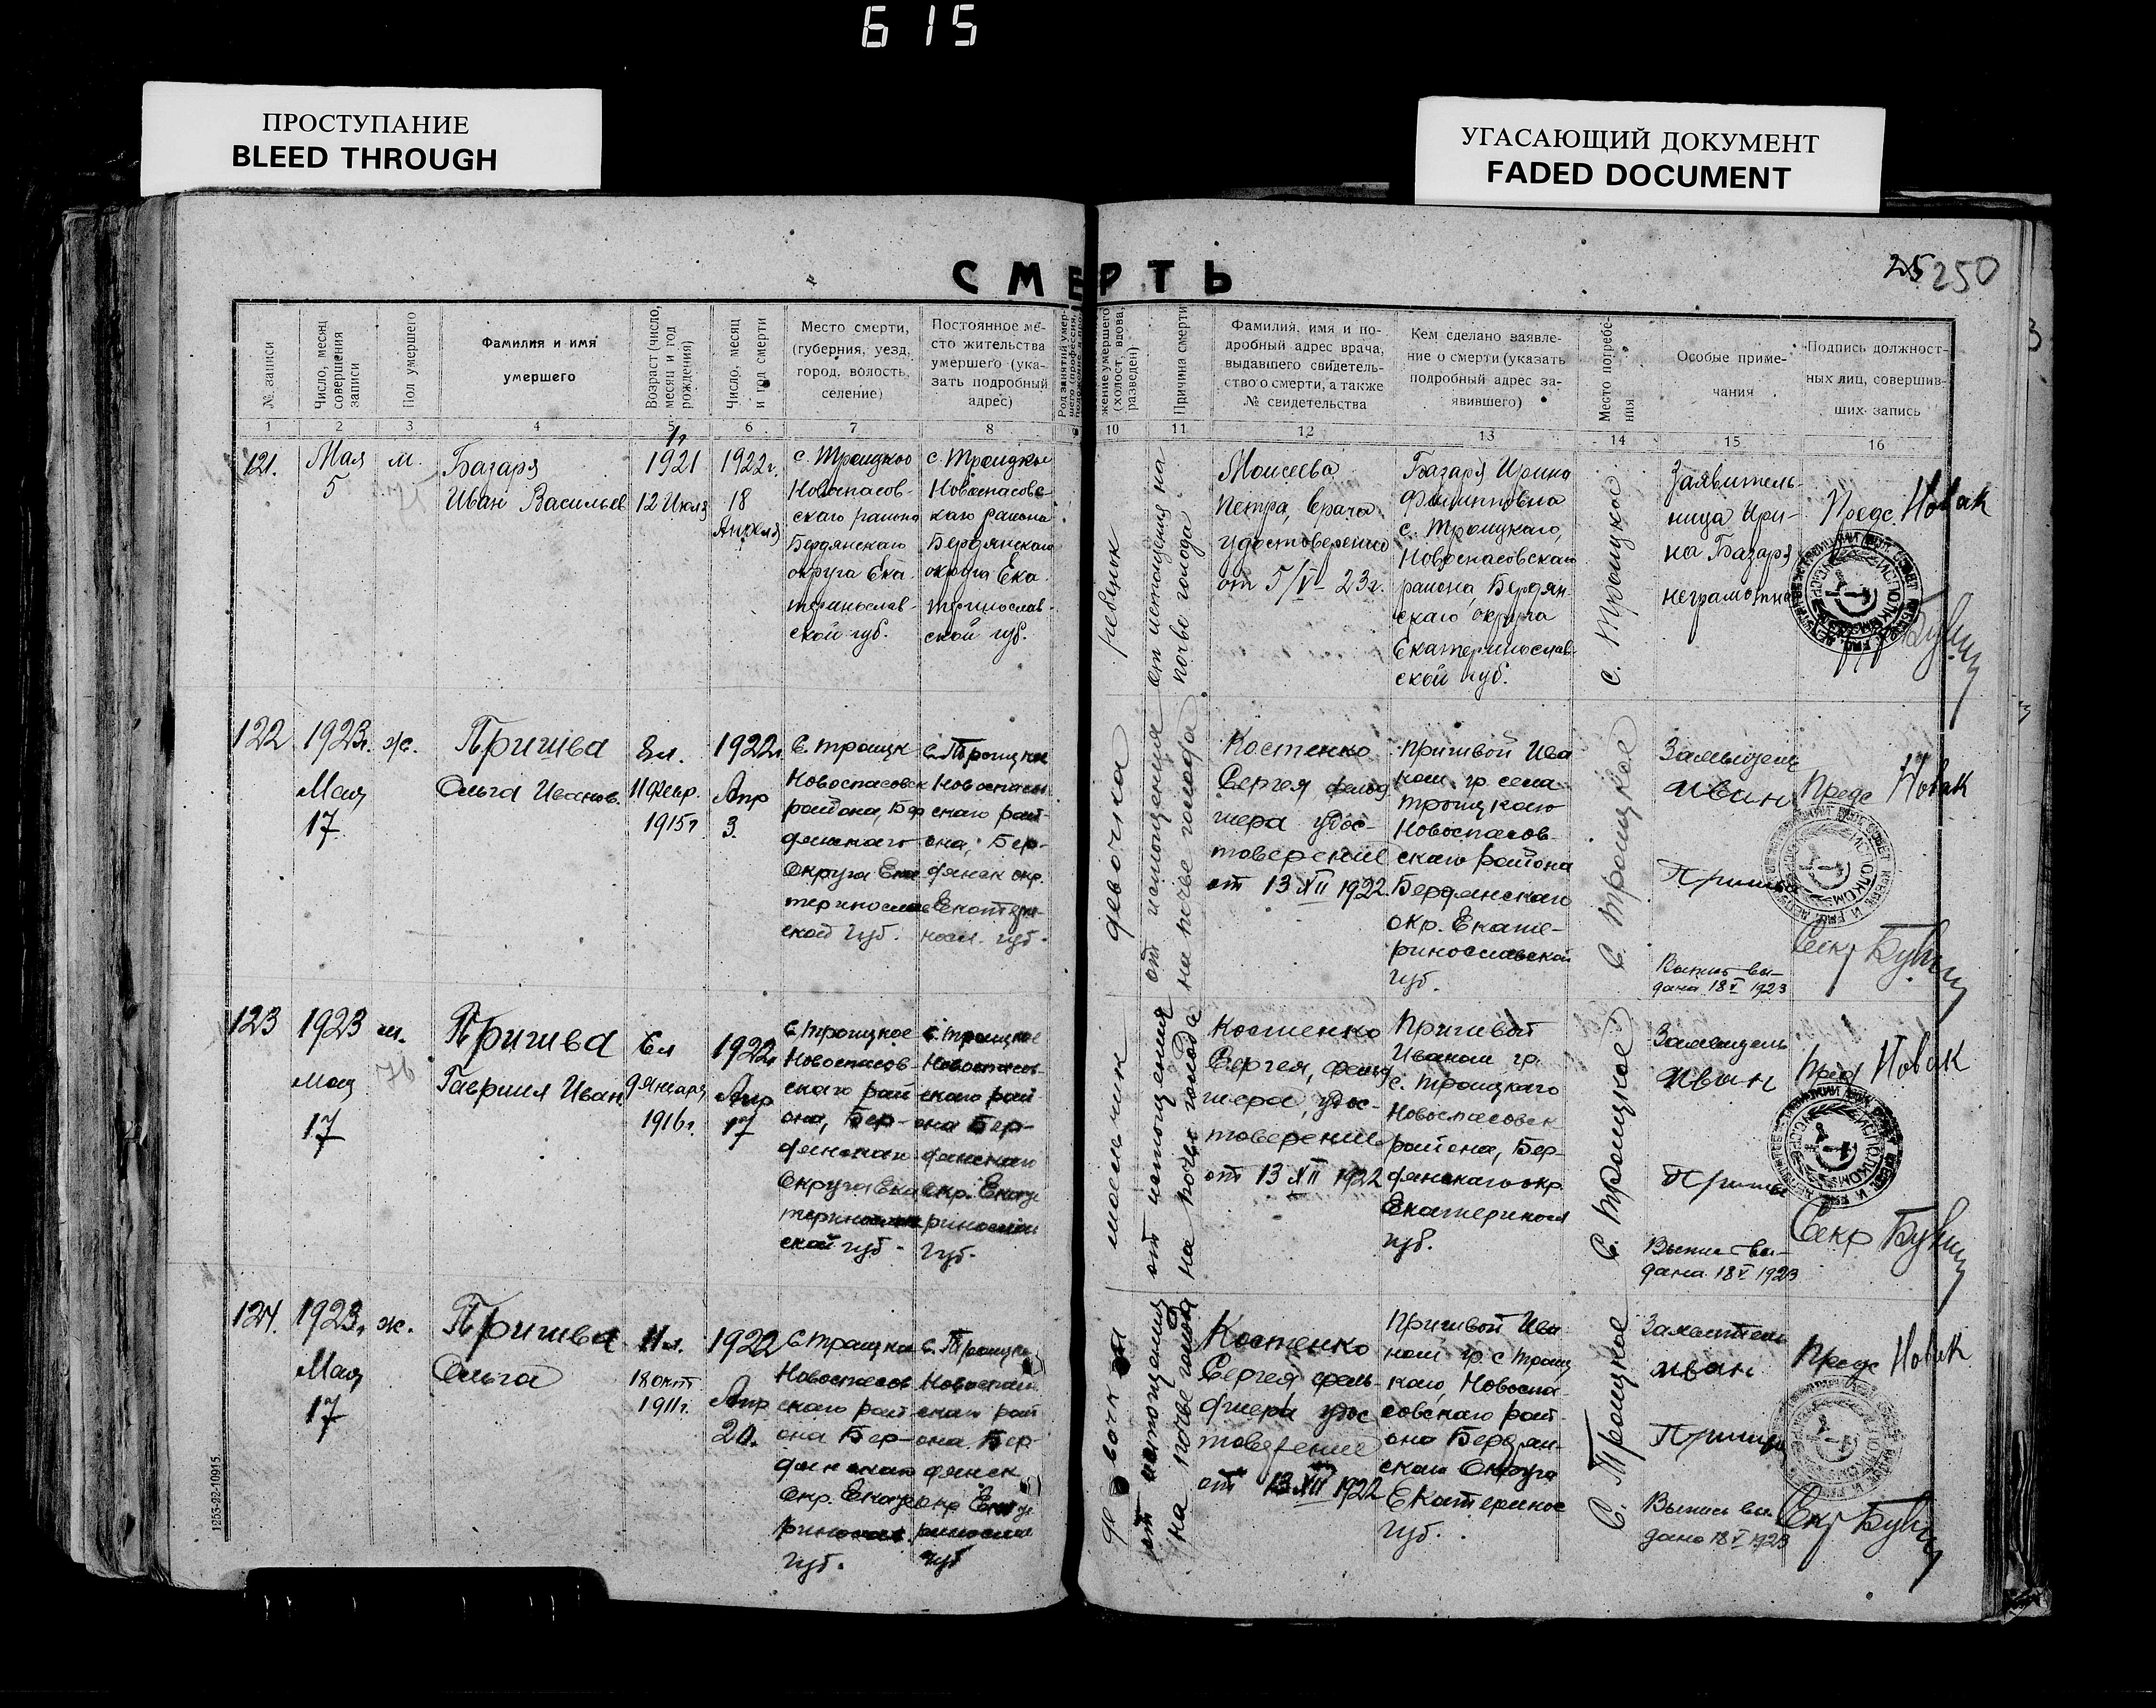 615
ПРОСТУПАНИЕ
BLEED THROUGH
УГАСАЮЩИЙ ДОКУМЕНТ
FADED DOCUMENT
СМЕРТЬ
250
№ записи
Число, месяц
совершения
записи
Пол умершего
Фамилия и имя
умершего
Возраст (число,
месяц и год
рождения)
Число, месяц
и год смерти
Место смерти,
(губерния, уезд,
город, волость,
селение)
Постоянное ме-
сто жительства
умершего (ука-
зать подробный
адрес)
жение умершего
(холост, вдова,
разведен)
Причина смерти
Фамилия, имя и по-
дробный адрес врача,
выдавшего свидетель-
ство о смерти, а также
№ свидетельства
Кем сделано заявле-
ние о смерти (указать
подробный адрес за-
явившего)
Место погребе-
ния
Особые приме-
чания
Подпись должност-
ных лиц, совершив-
ших запись
1 2 3 4 5 6 7 8 9 10 11 12 13 14 15 16
121.
Мая
5
м.
Базаря
Иван Васильев
1г
1921
12 Июля
1922г.
18
Апреля
с. Троицкое
Новоспасов-
скаго района
Бердянскаго
округа Ека-
теринослав-
ской губ.
с. Троицкое
Новоспасовс-
каго района
Бердянскаго
округа Ека-
теринослав-
ской губ.
ребенок
от истощения на
почве голода
Моисеева
Петра, врача
удостоверение
от 5/V-23г.
Базаря Ирина
Филипповна
с. Троицкаго,
Новоспасовскаго
района, Бердян-
скаго округа
Екатеринослав-
ской губ.
с. Троицкое
Заявитель-
ница Ири-
на Базаря
неграмотна
Предс. Новак
122
1923г.
Мая
17
ж.
Пришва
Ольга Иванов.
8л.
11 Февр.
1915г
1922г
Апр
3
с. Троицк
Новоспасовск
района, Бер
дянскаго
Округа Ека
теринослав
ской губ.
с. Троицкое
Новоспасов
скаго рай-
она, Бер-
дянск окр.
Екатери-
носл. губ.
девочка
от истощения
на почве голода
Костенко
Сергея фельд
шера удос-
товерение
от 13 XII 1922
Пришвой Ива
ном гр. села
Троицкаго
Новоспасов-
скаго района
Бердянскаго
окр. Екате-
ринославской
губ.
с. Троицкое
Заявитель
Иван
Пришва
Выпись вы-
дана 18 V 1923
Предс Новак
Секр
123
1923
мая
17
м.
Пришва
Гавриил Иван
6л
9 января
1916г.
1922г
Апр
17
с. Троицкое
Новоспасов
скаго рай
она, Бер-
дянскаго
Округа Ека
теринослав
ской губ.
с. Троицкое
Новоспасов
скаго рай
она Бер-
дянскаго
окр. Екате
ринослав
губ.
мальчик
от истощения
на почве голода
Костенко
Сергея, фельд
шера, удос-
товерение
от 13 XII 1922
Пришвой
Иваном гр.
с. Троицкаго
Новоспасовск
района, Бер-
дянскаго окр.
Екатериносл
губ.
с. Троицкое
Заявитель
Иван
Пришва
Выпись вы-
дана 18 V 1923
Пред Новак
Секр
124.
1923г
Мая
17
ж.
Пришва
Ольга
11л.
18 окт
1911г.
1922
Апр
20.
с Троицкое
Новоспасов
скаго рай
она Бер-
дянскаго
Окр. Екате
ринослав.
губ.
с. Троицкое
Новоспасов
скаго рай
она. Бер-
дянск
окр Екате
ринослав
губ
девочка
от истощения
на почве голода
Костенко
Сергея фель-
дшера удос
товерение
от 13 XII 1922
Пришвой Ива
ном гр с Троиц
каго, Новоспа
совскаго рай-
она Бердян-
скаго Округа
Екатеринос
губ.
с. Троицкое
Заявитель
Иван
Пришва
Выпись вы-
дана 18 V 1923
Предс Новак
Секр
1253-22-10915.